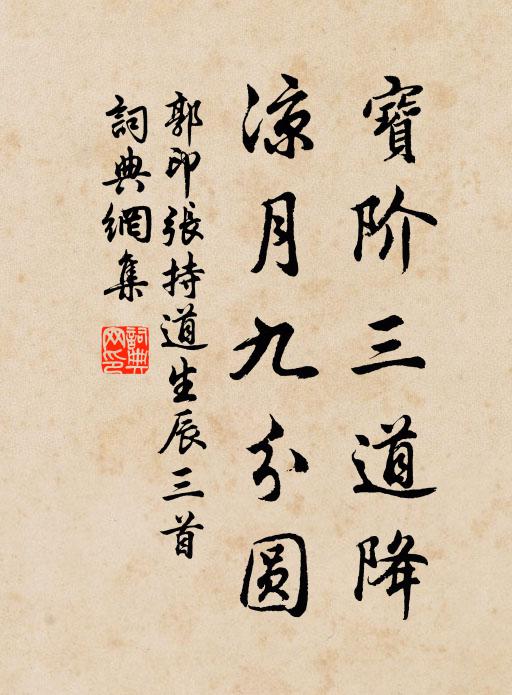 寶阶三道降
凉月九分圆
郭印張持道生辰三首
詞典網集
詞典網印